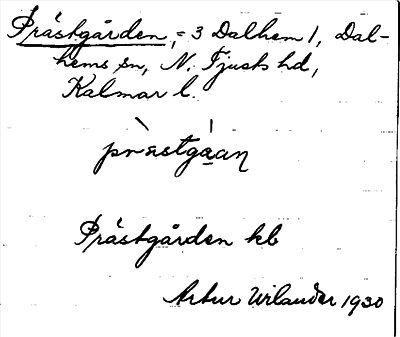 Prästgården, = 3 Dalhem 1, Dal-
hems sn, N. Tjusts hd,
Kalmar l.
præstgåan
Prästgården kb
Artur Wilander 1930